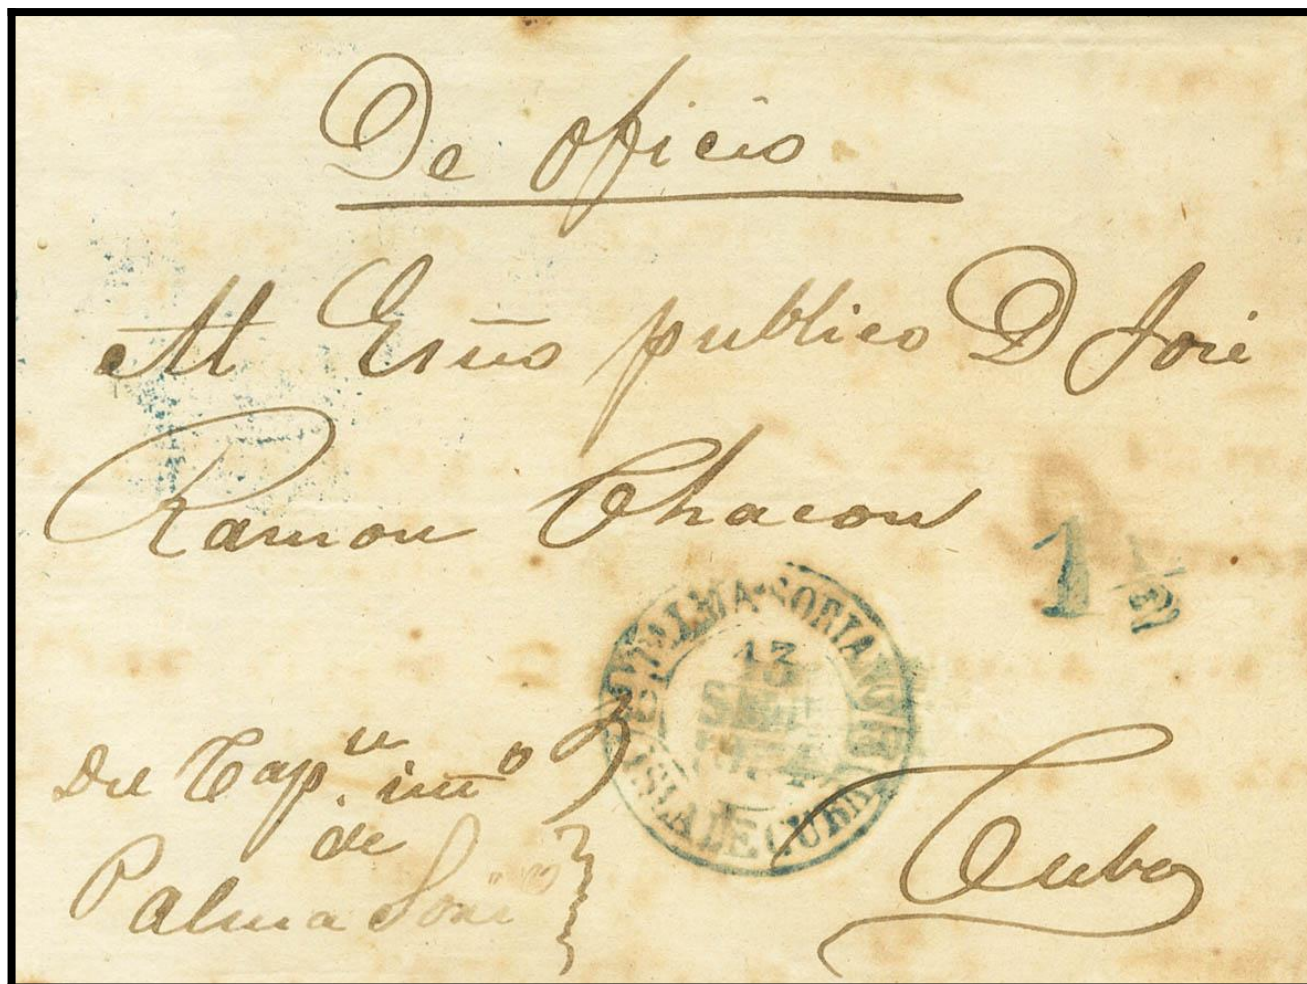 De oficio
Al Esño publico D José
Ramon Chacon
1 1/2
PALMA-SORIANO
13
ISLA DE CUBA
Del Capn. inno
de
Palma Sorio
Cuba